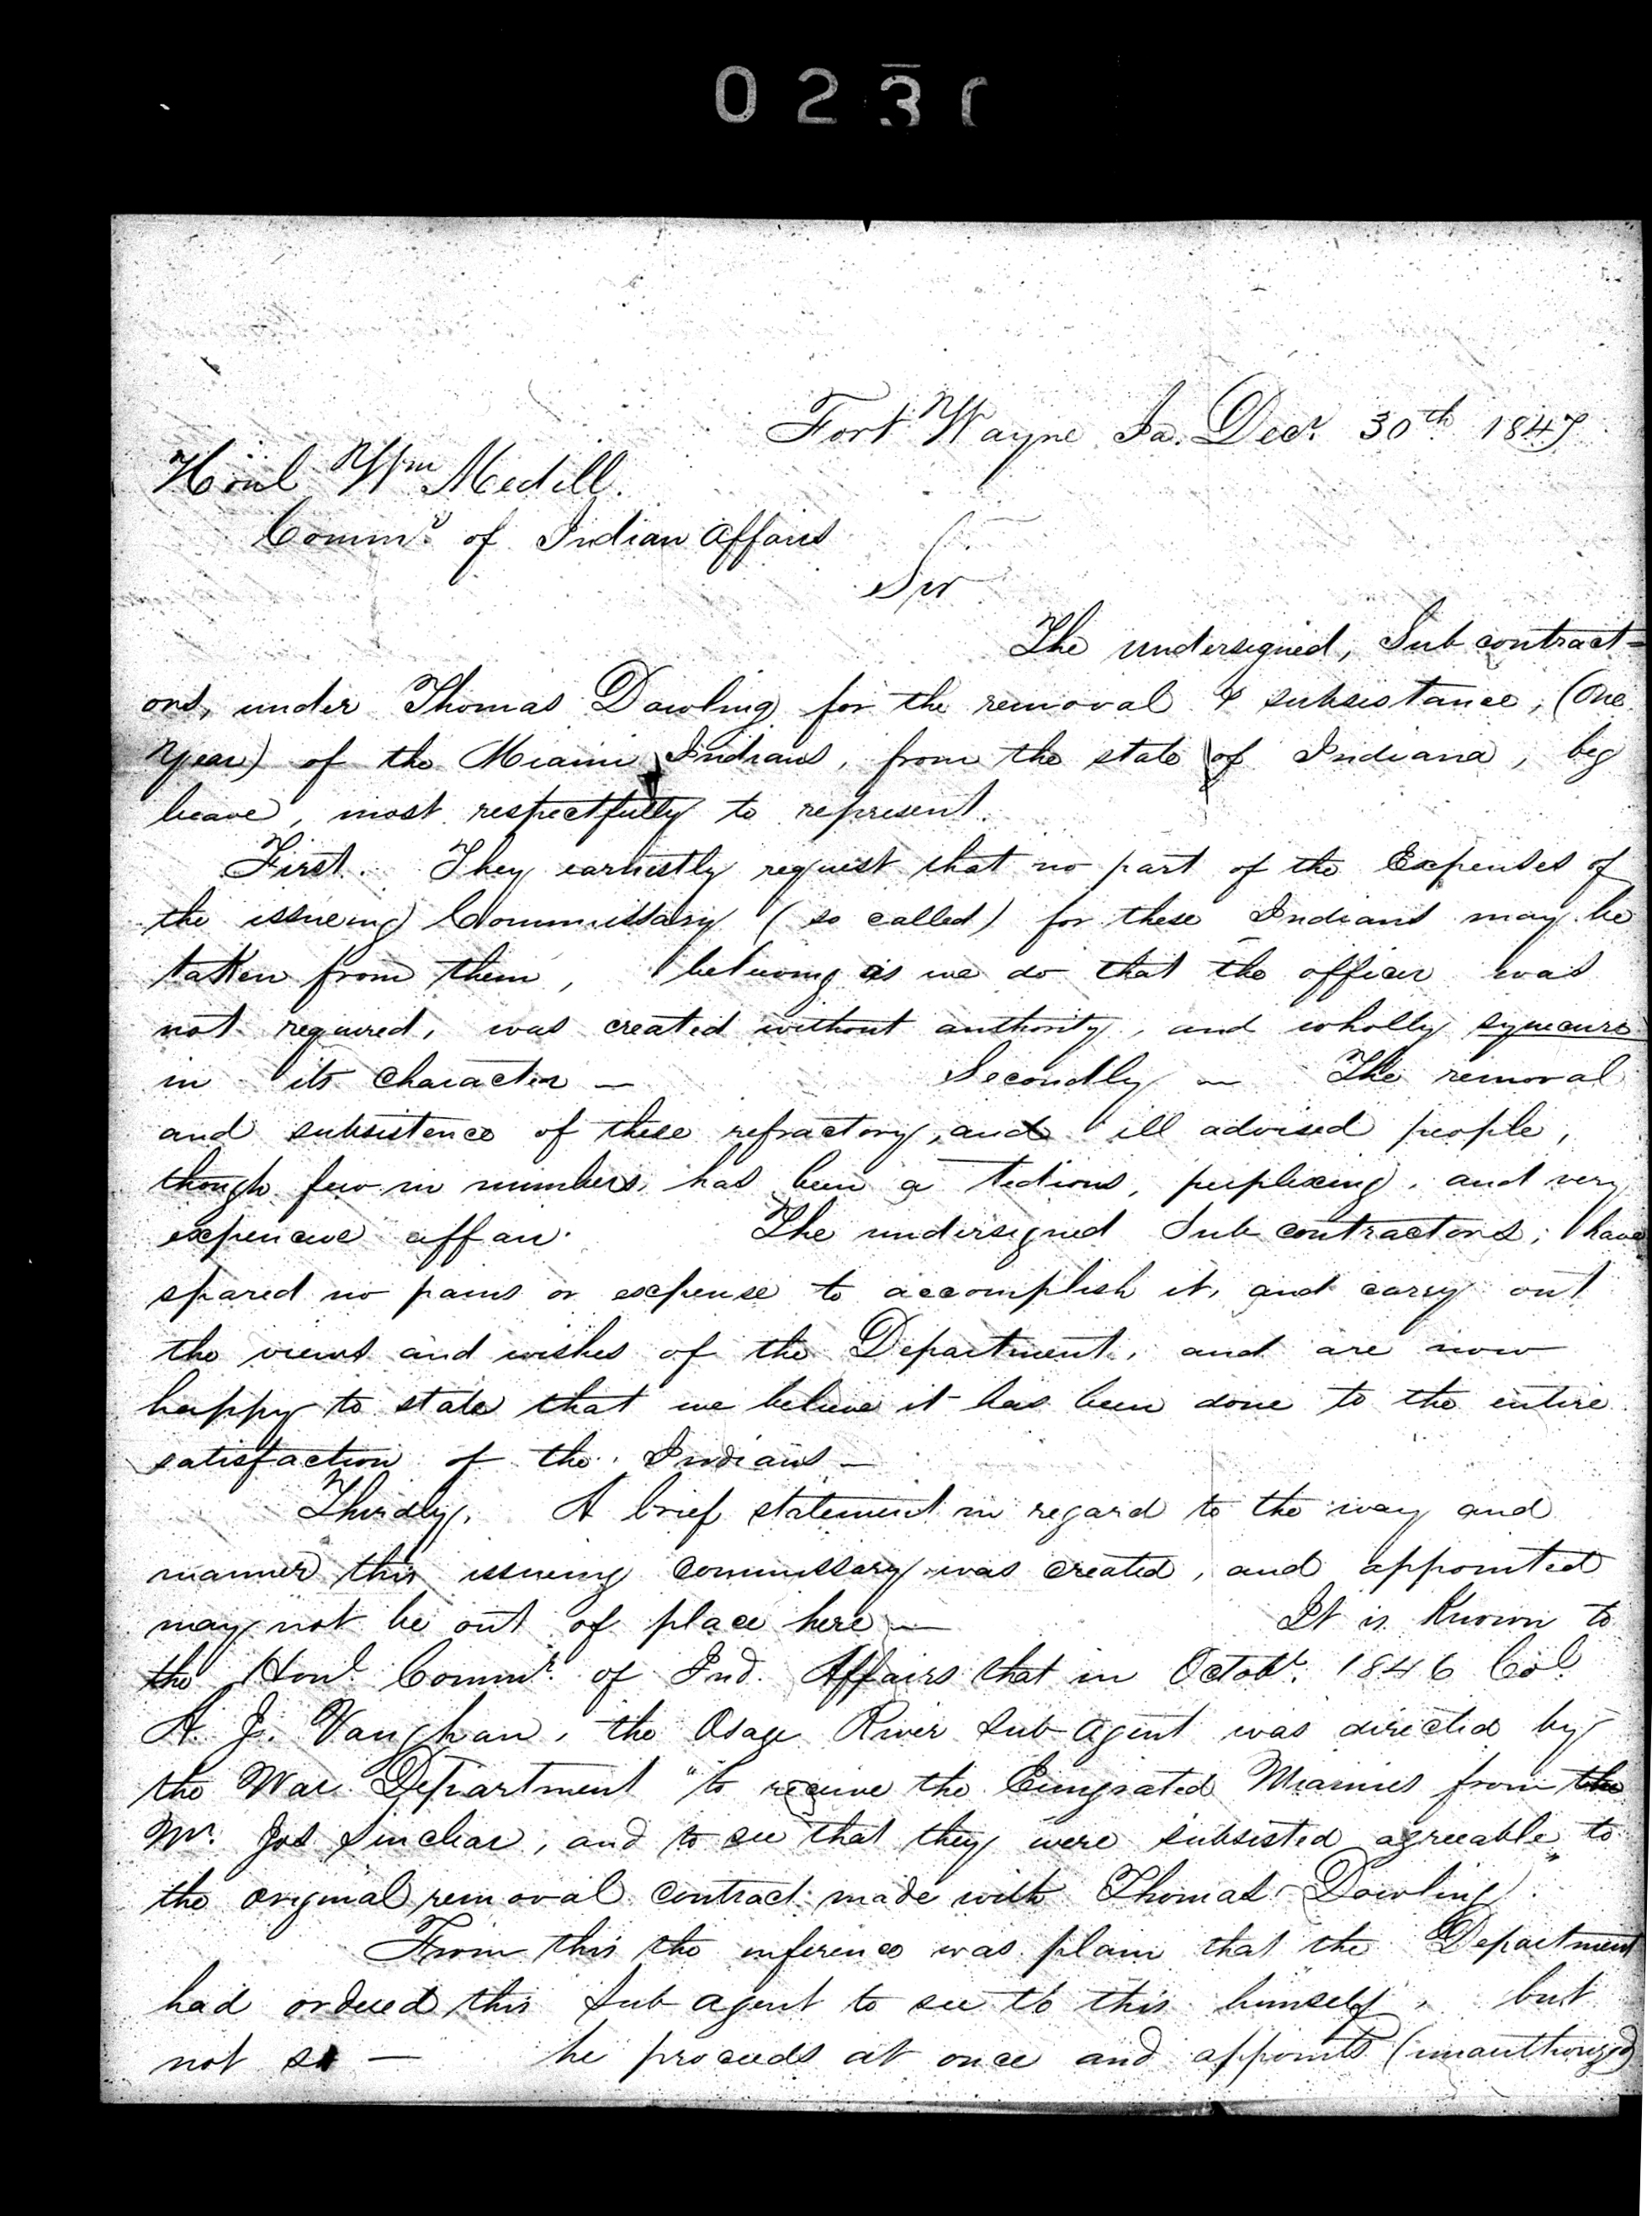 0230
Fort Wayne Ia. Decr. 30th 1847
Honl Wm Medill.
Commr. of Indian Affairs
Sir
The undersigned, Sub contract-
ors, under Thomas Dowling for the removal & subsistance, (One
Year) of the Miami Indians, from the state of Indiana, beg
leave, most respectfully to represent.
First. They earnestly request that no part of the Expenses of
the issueing Commissary (so called) for these Indians may be
taken from them, believing as we do that the officer was
not required, was created without authority, and wholly synecure
in its character — Secondly — The removal
and subsistence of these refractory, and ill advised people,
though few in numbers, has been a tedious, perplexing, and very
expencive affair. The undersigned Sub contractors, have
spared no pains or expense to accomplish it, and carry out
the views and wishes of the Department, and are now
happy to state that we believe it has been done to the entire
satisfaction of the Indians —
Thirdly. A brief statement in regard to the way and
manner this issueing commissary was created, and appointed
may not be out of place here — It is known to
the Honl. Commr. of Ind. Affairs that in Octobr. 1846 Col.
A. J. Vaughan, the Osage River Sub agent was directed by
the War Department "to receive the Emigrated Miamies from the
Mr. Jos Sinclear, and to see that they were subsisted agreeable" to
the original removal contract made with Thomas Dowling.
From this the inference was plain that the Department
had ordered this Sub agent to see to this himself, but
not so — he proceeds at once and appoints (unauthorized)